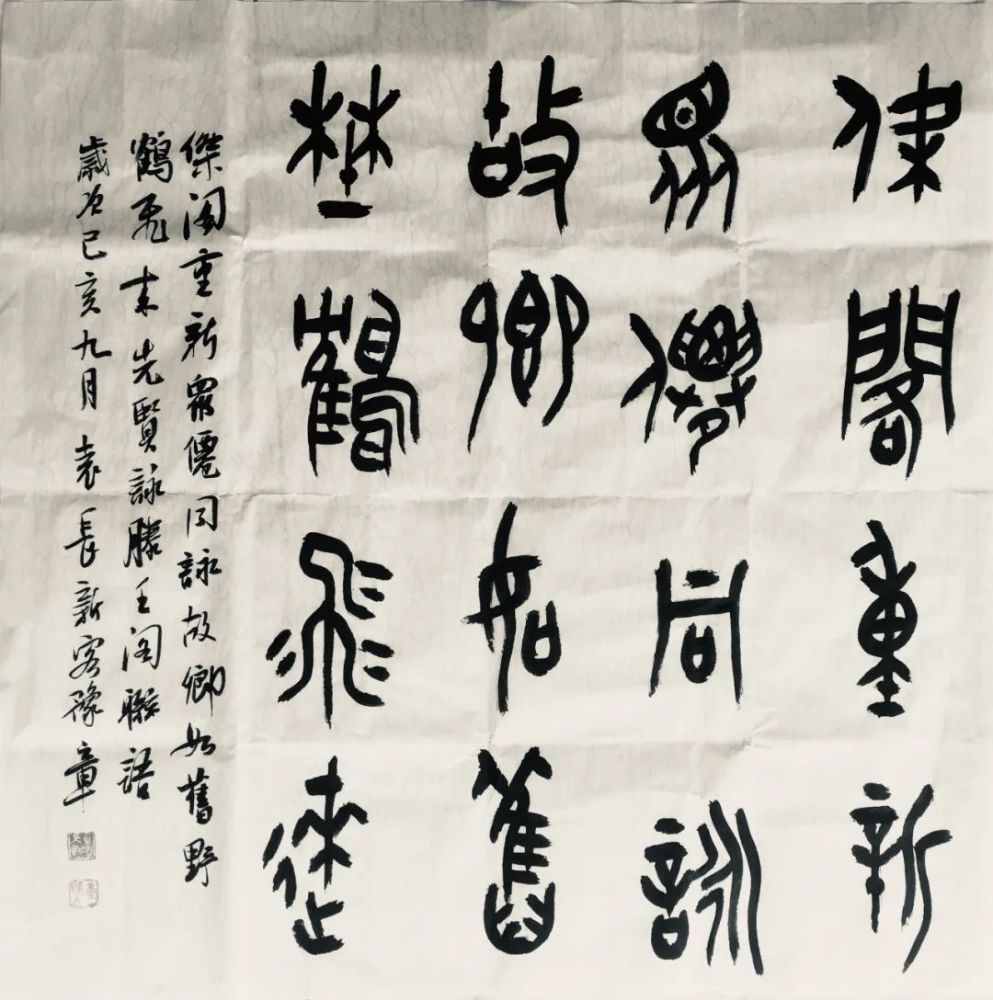 傑閣重新
眾僊同詠
故鄉如舊
埜鶴飛來
傑閣重新眾僊同詠故鄉如舊野
鶴飛來先賢詠滕王閣聯語
歲次己亥九月袁長新客豫章